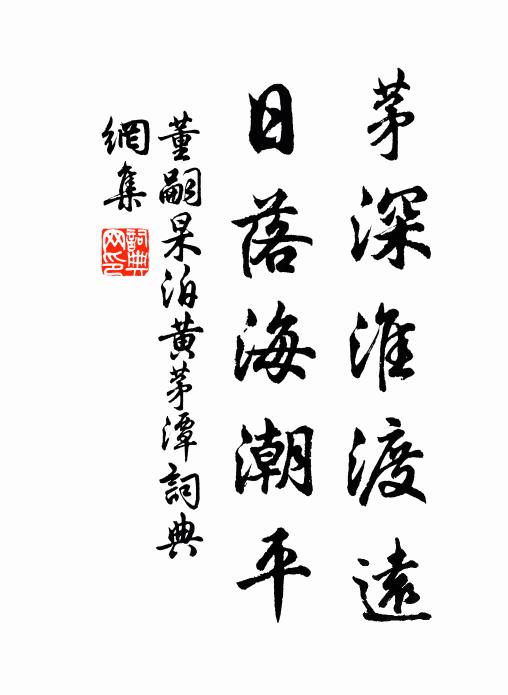 茅深淮渡遠
日落海潮平
董嗣杲泊黃茅潭詞典
網集
詞典網印